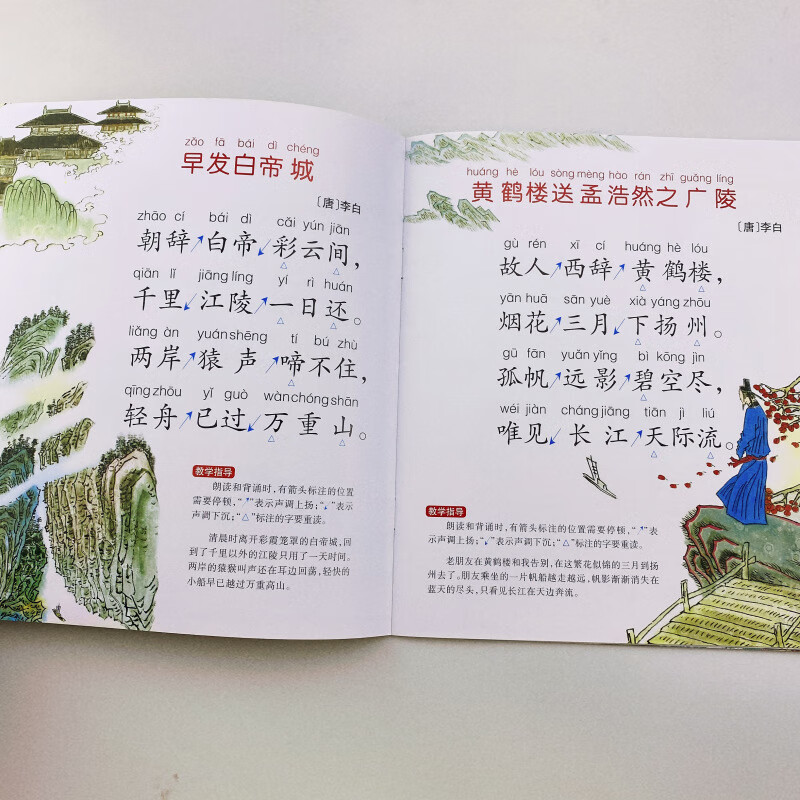 zǎo fā bái dì chéng
早发白帝城
〔唐〕李白
zhāo cí bái dì cǎi yún jiān
朝辞↗白帝↙彩云间，
△ △
qiān lǐ jiāng líng yí rì huán
千里↙江陵↗一日还。
△ △
liǎng àn yuán shēng tí bú zhù
两岸↗猿声↗啼不住，
△
qīng zhōu yǐ guò wàn chóng shān
轻舟↗已过↙万重山。
△ △
教学指导
朗读和背诵时，有箭头标注的位置
需要停顿，“↗”表示声调上扬；“↙”表示
声调下沉；“△”标注的字要重读。
清晨时离开彩霞笼罩的白帝城，回
到了千里以外的江陵只用了一天时间。
两岸的猿猴叫声还在耳边回荡，轻快的
小船早已越过万重高山。
huáng hè lóu sòng mèng hào rán zhī guǎng líng
黄鹤楼送孟浩然之广陵
〔唐〕李白
gù rén xī cí huáng hè lóu
故人↗西辞↗黄鹤楼，
△ △
yān huā sān yuè xià yáng zhōu
烟花↗三月↙下扬州。
△ △
gū fān yuǎn yǐng bì kōng jìn
孤帆↗远影↗碧空尽，
△
wéi jiàn cháng jiāng tiān jì liú
唯见↙长江↗天际流。
△ △
教学指导
朗读和背诵时，有箭头标注的位置需要停顿，“↗”表
示声调上扬；“↙”表示声调下沉；“△”标注的字要重读。
老朋友在黄鹤楼和我告别，在这繁花似锦的三月到扬
州去了。朋友乘坐的一片帆船越走越远，帆影渐渐消失在
蓝天的尽头，只看见长江在天边奔流。